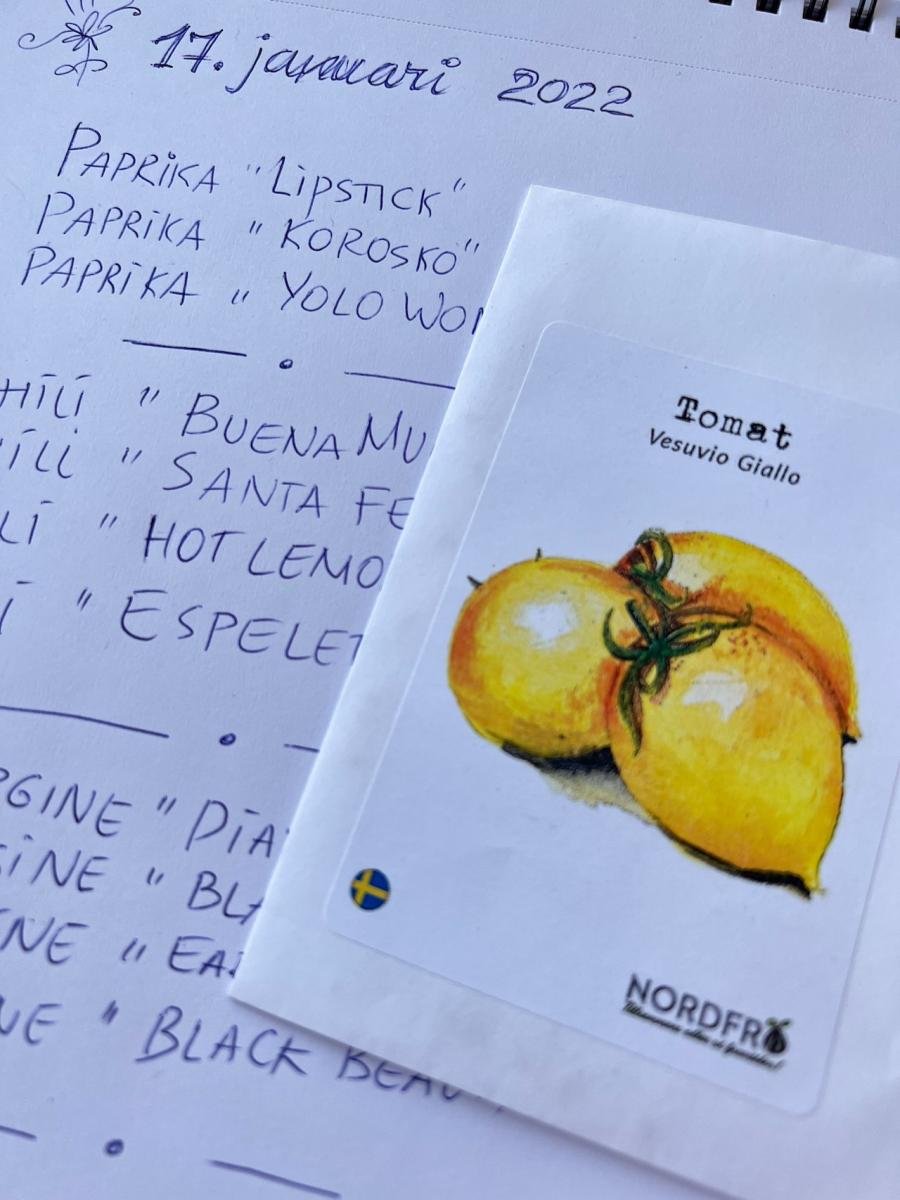 17. januari 2022
PAPRIKA "LIPSTICK"
PAPRIKA "KOROSKO"
PAPRIKA " YOLO WON
HILI " BUENA MU
ILI " SANTA FE
LI " HOT LEMO
I " ESPELET
RGINE " DIA
GINE " BLA
INE " EA
NE " BLACK BEAU
Tomat
Vesuvio Giallo
NORDFRÖ